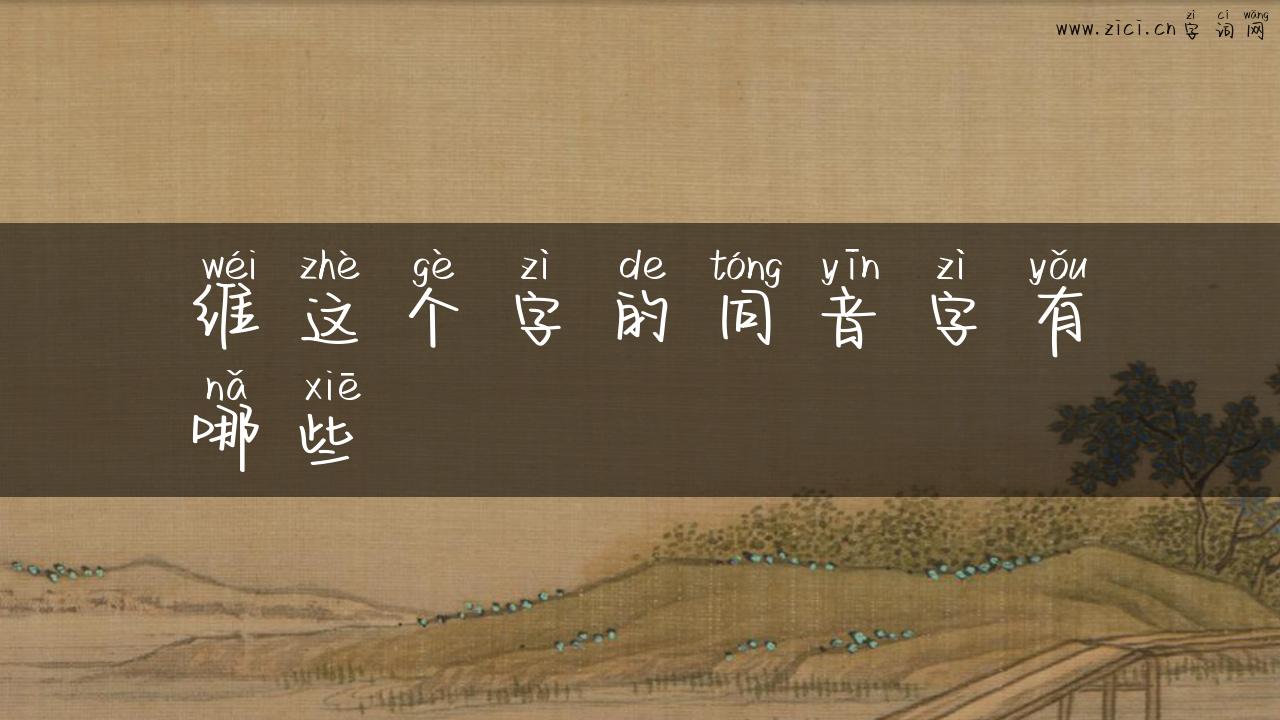 zì cí wǎng
www.zici.cn字词网
wéi zhè gè zì de tóng yīn zì yǒu
维这个字的同音字有
nǎ xiē
哪些